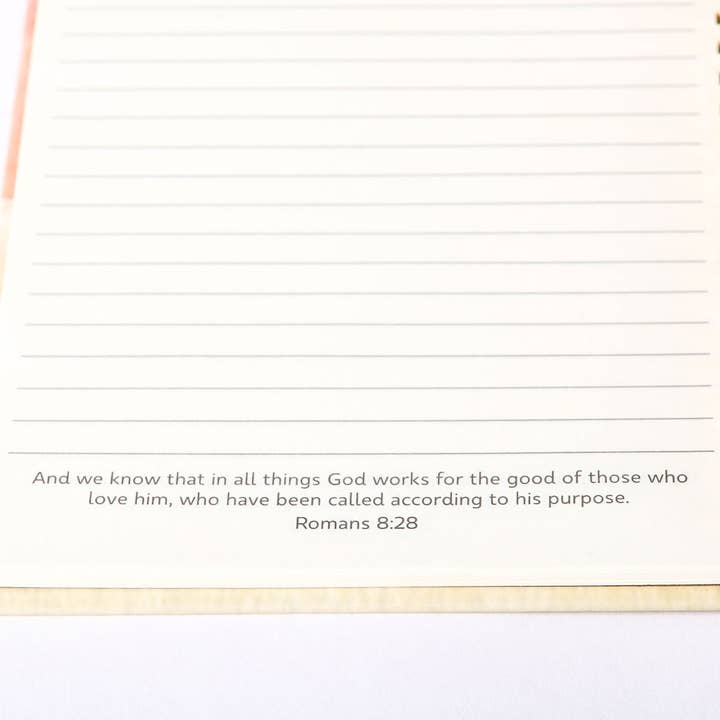 And we know that in all things God works for the good of those who
love him, who have been called according to his purpose.
Romans 8:28